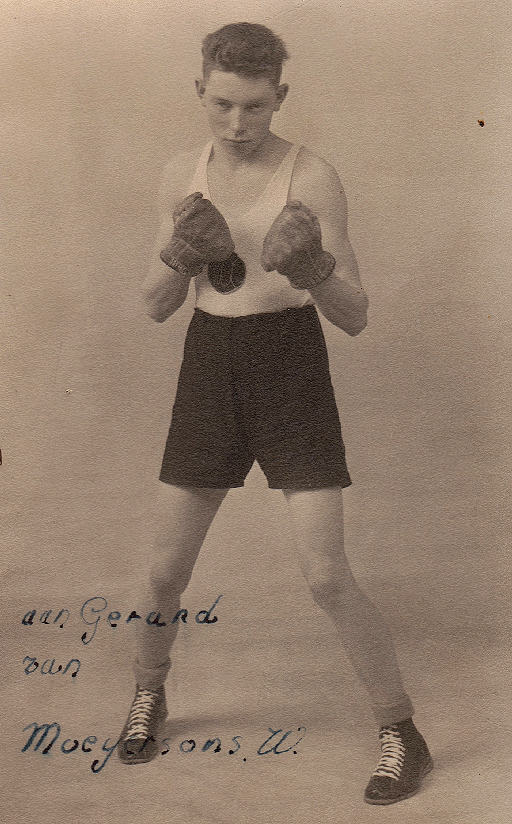 aan Gerard
van
Moeyersons. W.